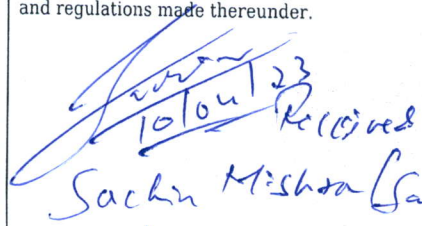 and regulations made thereunder.
10/04/23
Received
Sachin Mishra (Sa